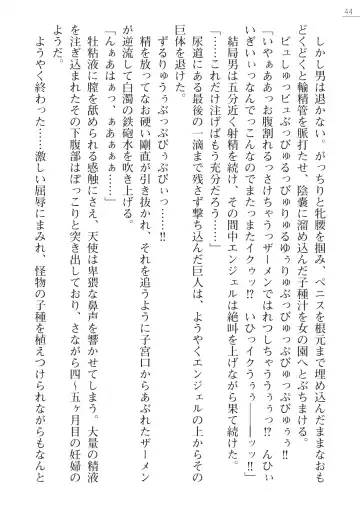 44
　しかし男は退かない。がっちりと牝腰を掴み、ペニスを根元まで埋め込んだままなおも
どくどくと輸精管を脈打たせ、陰嚢に溜め込んだ子種汁を女の園へとぶちまける。
　ビュしゅっビュぶびゅるっびゅりゅるゆぅりゅぶっびゅっぷびゅっぷぴゅぅぅ‼
「いやぁああっお腹割れるっさけちゃうっザーメンではれつしちゃううぅぅっ⁉　んひぃ
いぎいぃっなんでっこんなのでまたっまたイクゥッ⁉　いひっイクうぅぅ━━ッッ‼」
　結局男は五分近く射精を続け、その間中エンジェルは絶叫を上げながら果て続けた。
「……これだけ注げばもう充分だろう……」
　尿道に最後の一滴まで残さず撃ち込んだ巨人は、ようやくエンジェルの上からその
巨体を退けた。
　ずるりゅうぅぷっぷぴゅぅぷぴぃっ……‼
　精を放ってなお硬い剛直が引き抜かれ、それを追うように子宮口からあぶれたザーメン
が逆流して白濁の鉄砲水を吹き上げる。
「んぁあはぁっっ、ぁあぁぁぁ……」
　牡粘液に膣を舐められる感触にさえ、天使は卑猥な鼻声を響かせてしまう。大量の精液
を注ぎ込まれたその下腹部はぽっこりと突き出しており、さながら四〜五ヶ月目の妊婦の
ようだ。
　ようやく終わった……激しい屈辱にまみれ、怪物の子種を植えつけられながらもなんと